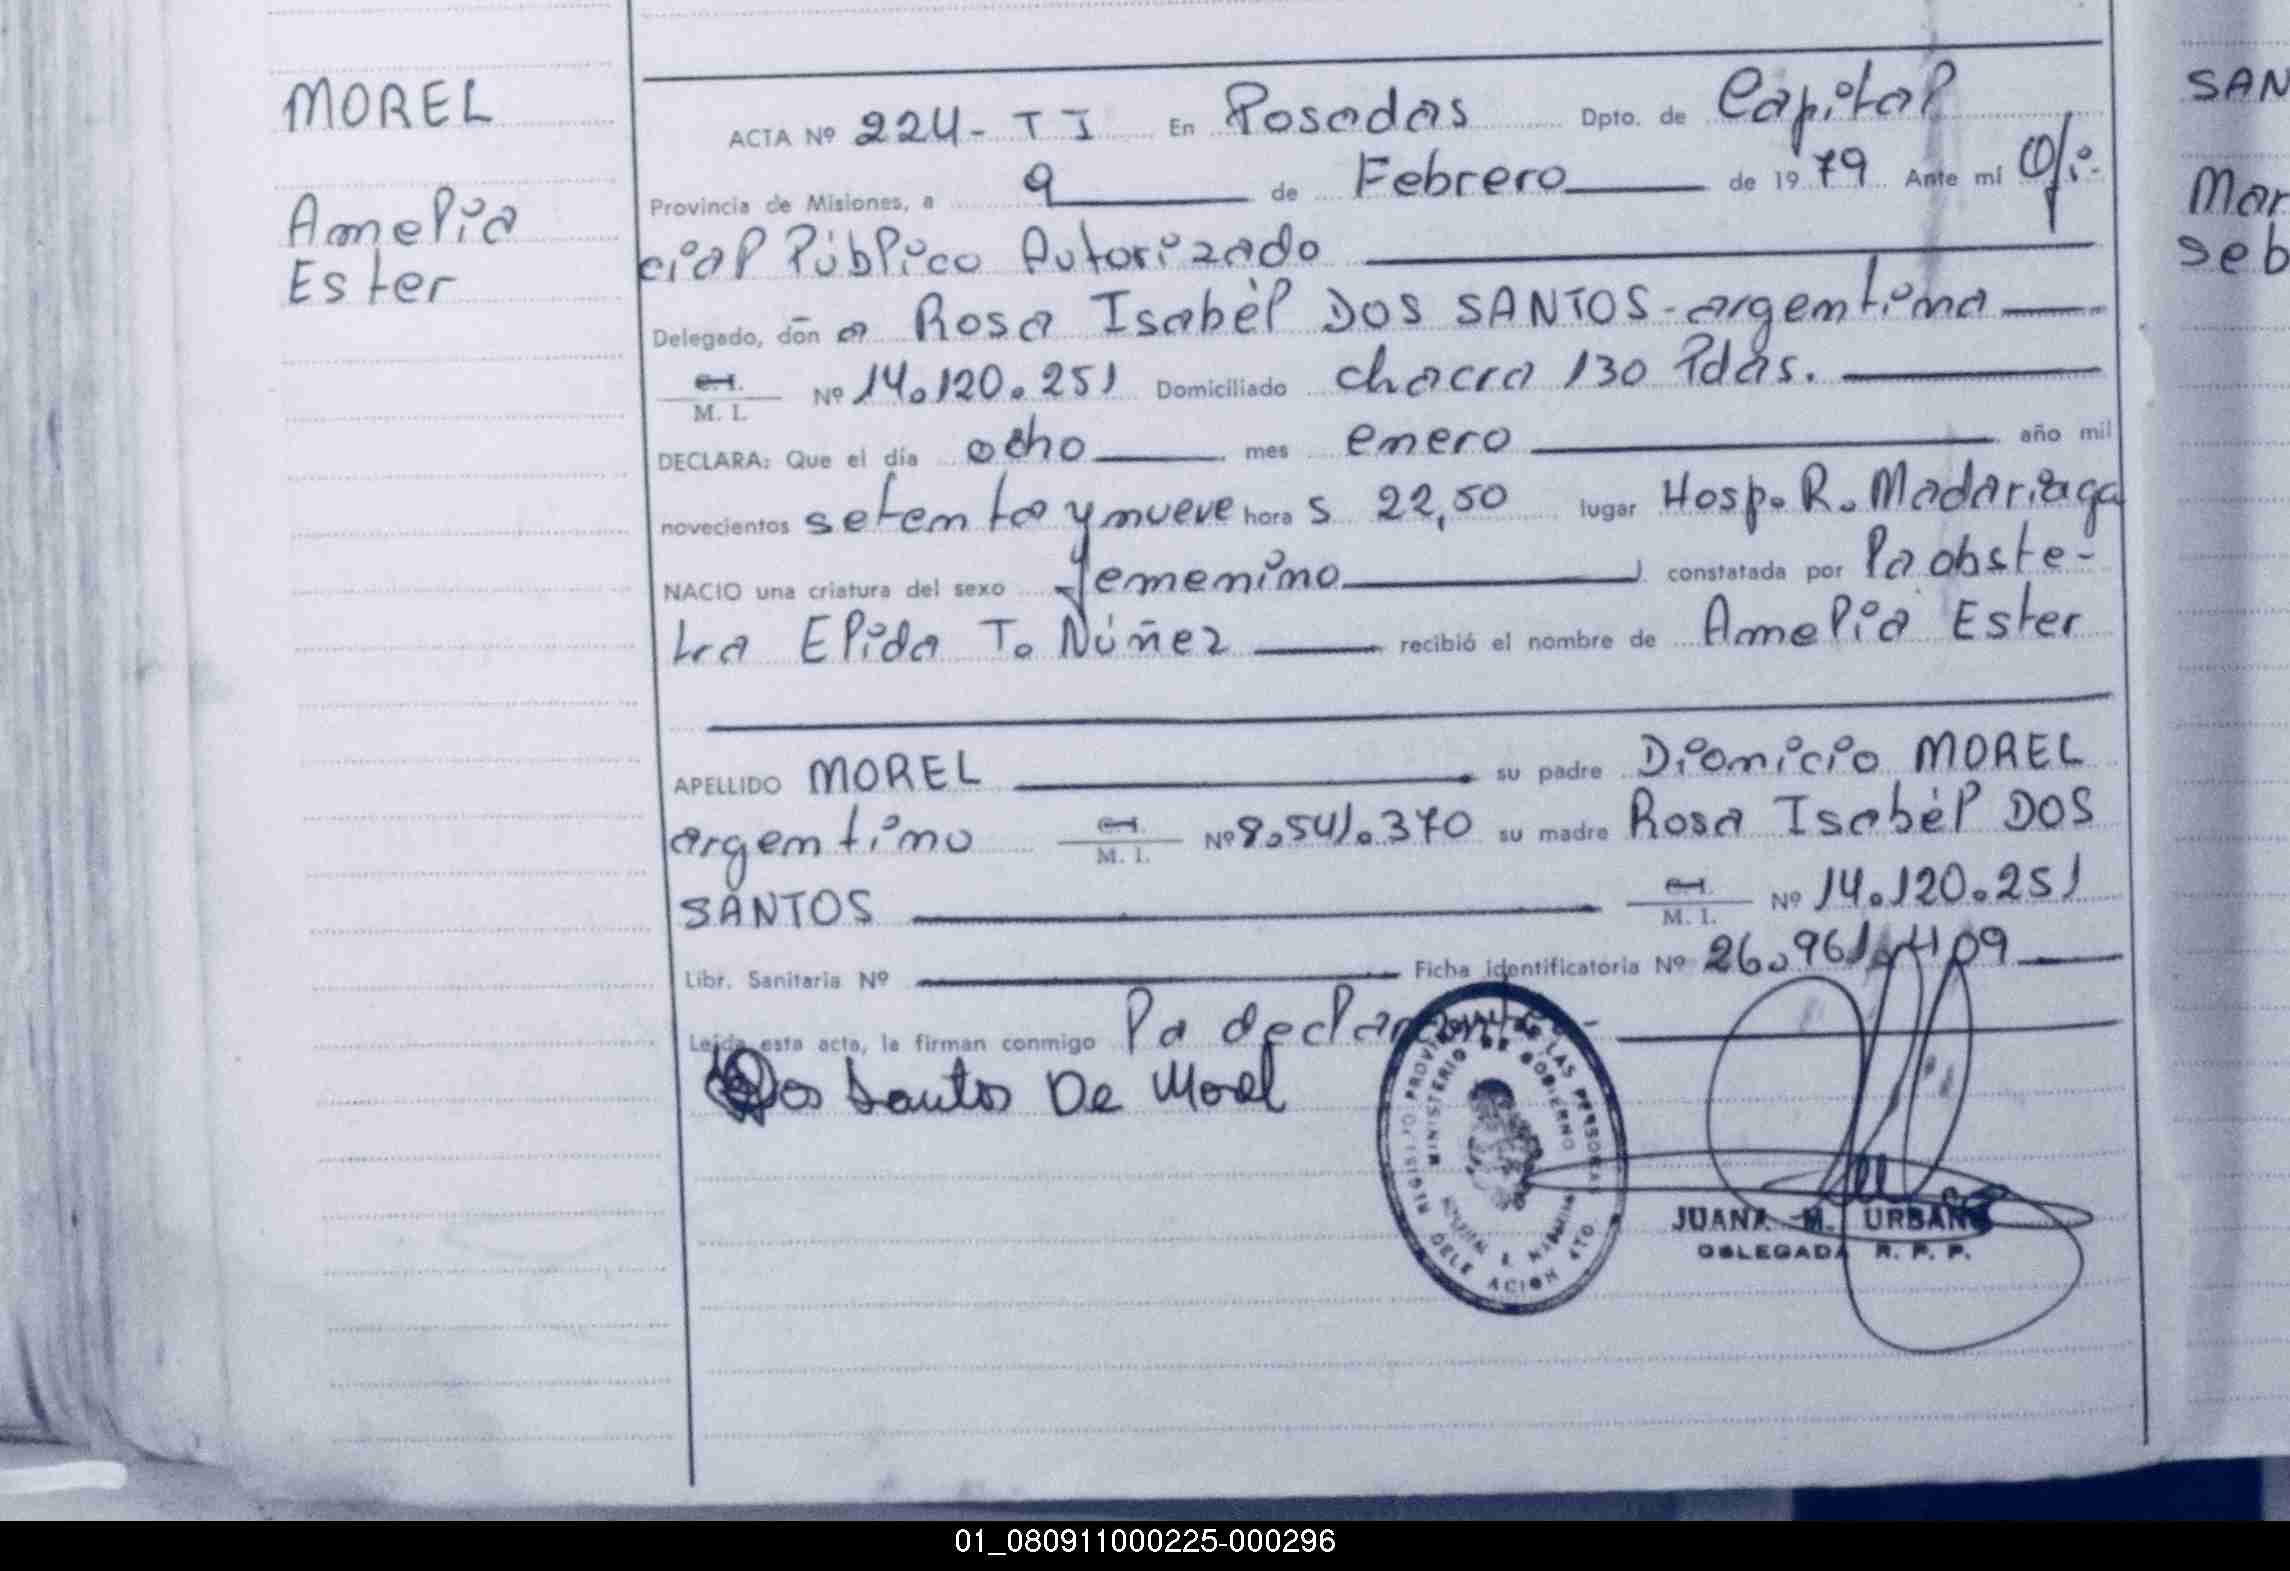 MOREL
Amelia
Ester
ACTA Nº 224- T I En Posadas Dpto. de Capital
Provincia de Misiones, a 9 de Febrero de 1979 Ante mi Ofi-
cial Público Autorizado
Delegado, don a Rosa Isabél DOS SANTOS - argentina
M. I. Nº 14.120.251 Domiciliado chacra 130 Pdas.
DECLARA: Que el día ocho mes enero año mil
novecientos setenta y nueve hora s 22,50 lugar Hosp. R. Madariaga
NACIO una criatura del sexo femenino constatada por la obste-
tra Elida T. Núñez recibió el nombre de Amelia Ester
APELLIDO MOREL su padre Dionicio MOREL
argentino M. I. Nº 8.541.370 su madre Rosa Isabél DOS
SANTOS M. I. Nº 14.120.251
Libr. Sanitaria Nº Ficha identificatoria Nº 26.961.409
Leida esta acta, la firman conmigo la declarante.-
Dos Santos De Morel
REGISTRO PROVINCIAL DE LAS PERSONAS
MINISTERIO DE GOBIERNO
DELEGACION 4TO.
JUANA M. URBANO
DELEGADA R. P. P.
SAN
Mar
seb
01_080911000225-000296